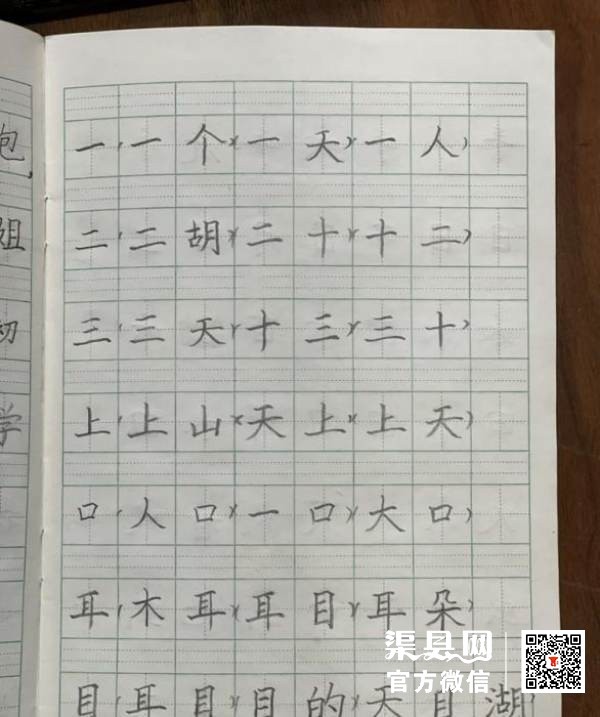 包
一(一个)(一天)(一人)
姐
二(二胡)(二十)(十二)
初
三(三天)(十三)(三十)
学
上(上山)(天上)(上天)
口(人口)(一口)(大口)
耳(木耳)(耳目)(耳朵)
目(耳目)(目的)(天目湖)
渠县网
官方微信